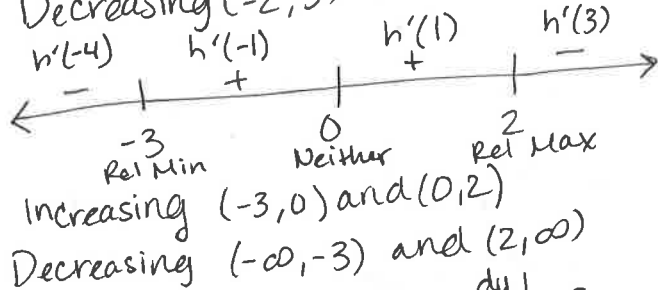 Decreasing (-2,
h'(-4) h'(-1) h'(1) h'(3)
- + + -
-3 0 2
Rel Min Neither Rel Max
Increasing (-3,0) and (0,2)
Decreasing (-∞,-3) and (2,∞)
dy